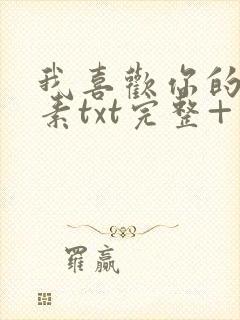 我喜歡你的
素txt完整+
羅贏